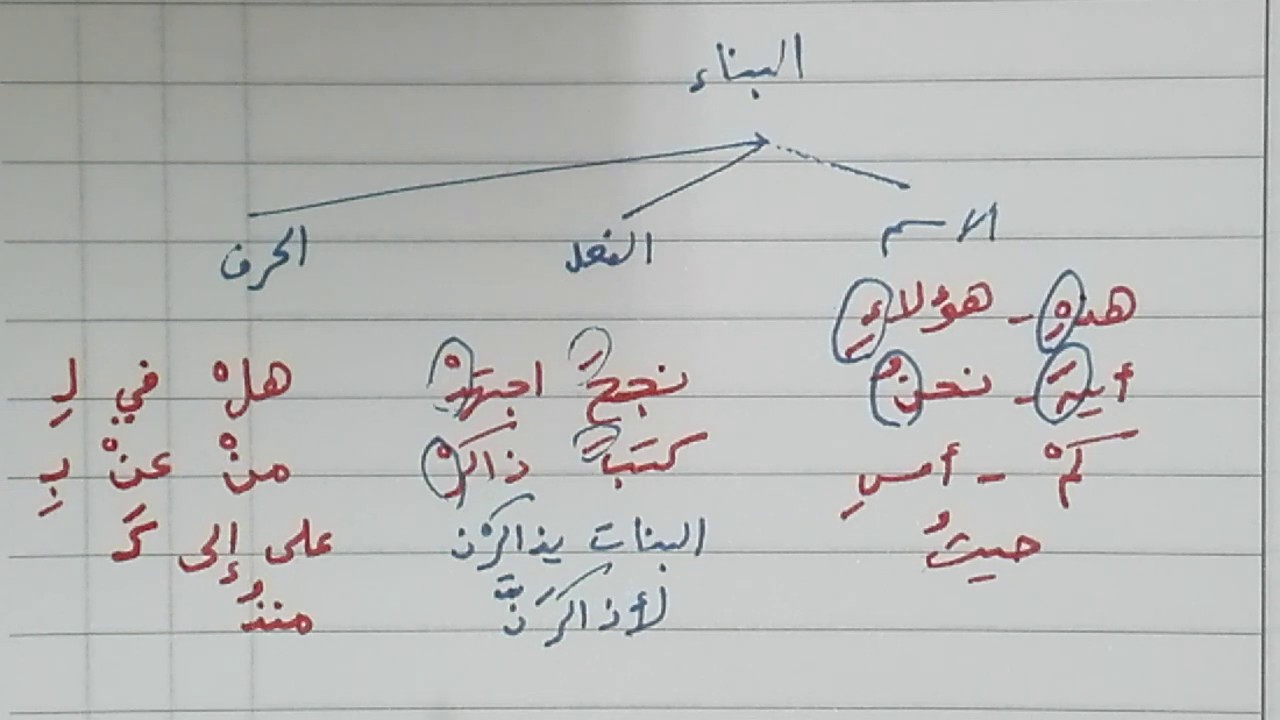 البناء
الاسم الفعل الحرف
هذهِ - هؤلاءِ
أينَ - نحنُ نجحَ اجتهدْ هلْ في لِ
كمْ - أمسِ كتبَ ذاكرْ منْ عنْ بِ
حيثُ البنات يذاكرْن على إلى كَ
لأذاكرَنَّ منذُ